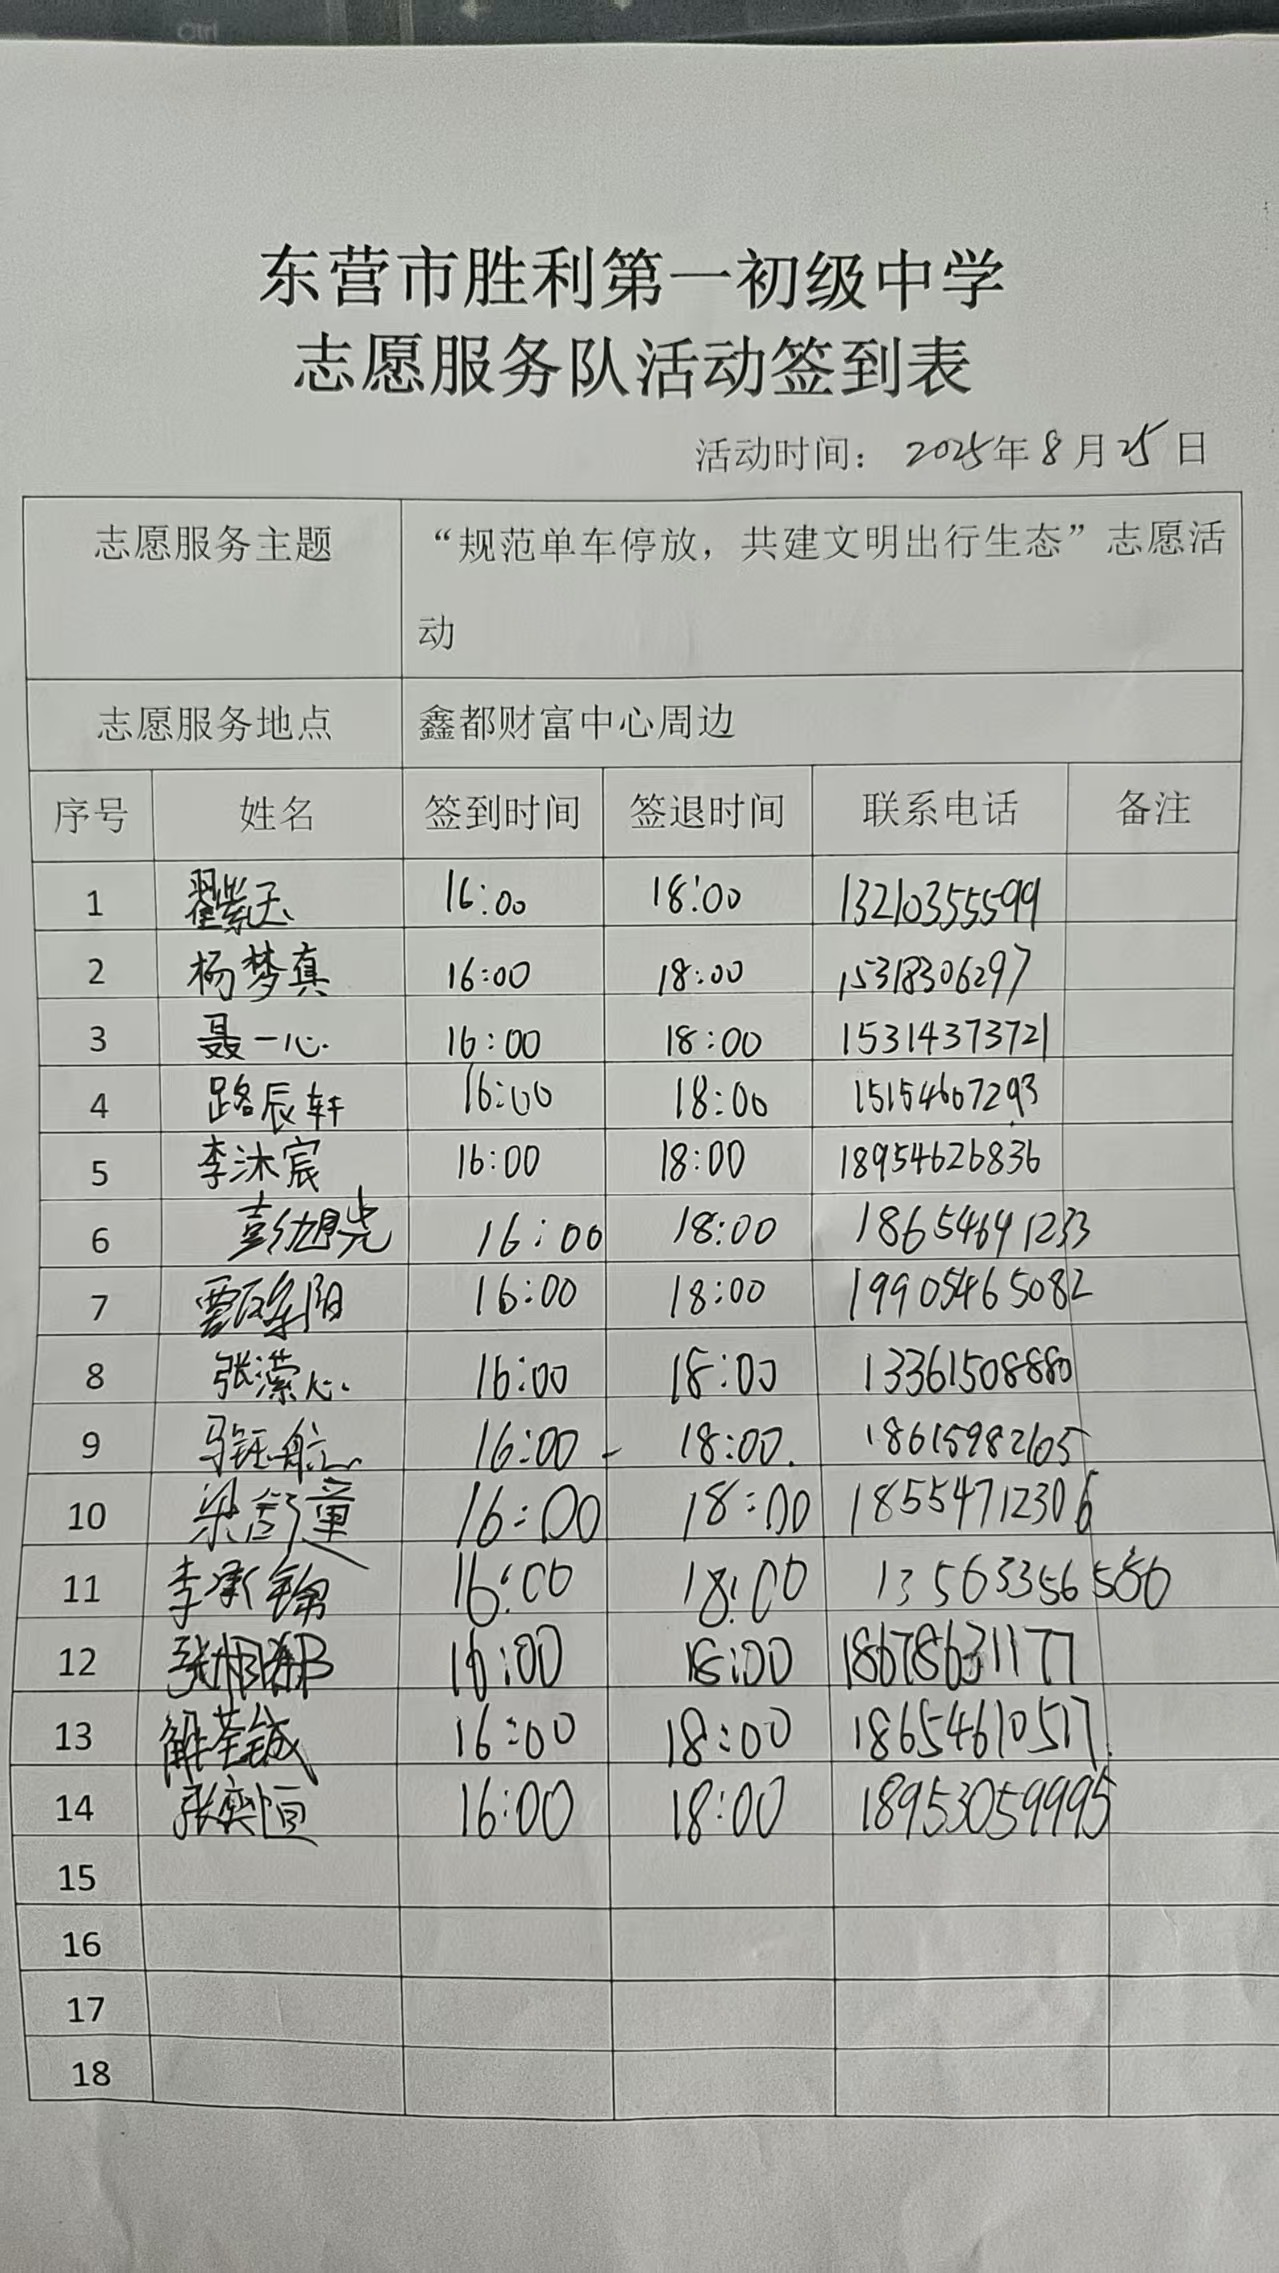 Ctrl
东营市胜利第一初级中学
志愿服务队活动签到表
活动时间： 2025年8月25日
志愿服务主题 “规范单车停放，共建文明出行生态”志愿活
动
志愿服务地点 鑫都财富中心周边
序号 姓名 签到时间 签退时间 联系电话 备注
1 翟紫玉 16:00 18:00 13210355599
2 杨梦真 16:00 18:00 15318306297
3 聂一心 16:00 18:00 15314373721
4 路辰轩 16:00 18:00 15154607293
5 李沐宸 16:00 18:00 18954626836
6 彭旭尧 16:00 18:00 18654641233
7 16:00 18:00 19905465082
8 张潆心 16:00 18:00 13361508880
9 马钰航 16:00 18:00 18615982105
10 梁舒童 16:00 18:00 18554712306
11 李承锦 16:00 18:00 13563356586
12 16:00 18:00 18678631177
13 解荃铖 16:00 18:00 18654610517
14 张奕恒 16:00 18:00 18953059995
15
16
17
18